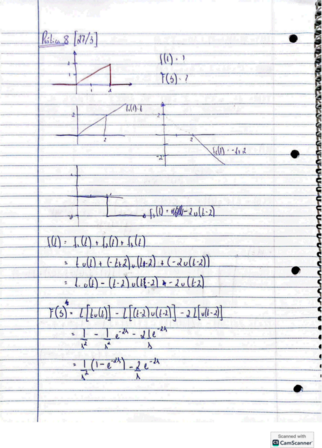 [27/3]
f(t) = ?
F(s) = ?
f₁(t) = t
f₂(t) = -t+2
f₃(t) = -2u(t-2)
f(t) = f₁(t) + f₂(t) + f₃(t)
= t u(t) + (-t+2) u(t-2) + (-2u(t-2))
= t u(t) - (t-2) u(t-2) - 2u(t-2)
F(s) = L[t u(t)] - L[(t-2) u(t-2)] - 2L[u(t-2)]
= 1/s² - 1/s² e^-2s - 2 1/s e^-2s
= 1/s² (1 - e^-2s) - 2/s e^-2s
Scanned with
CamScanner